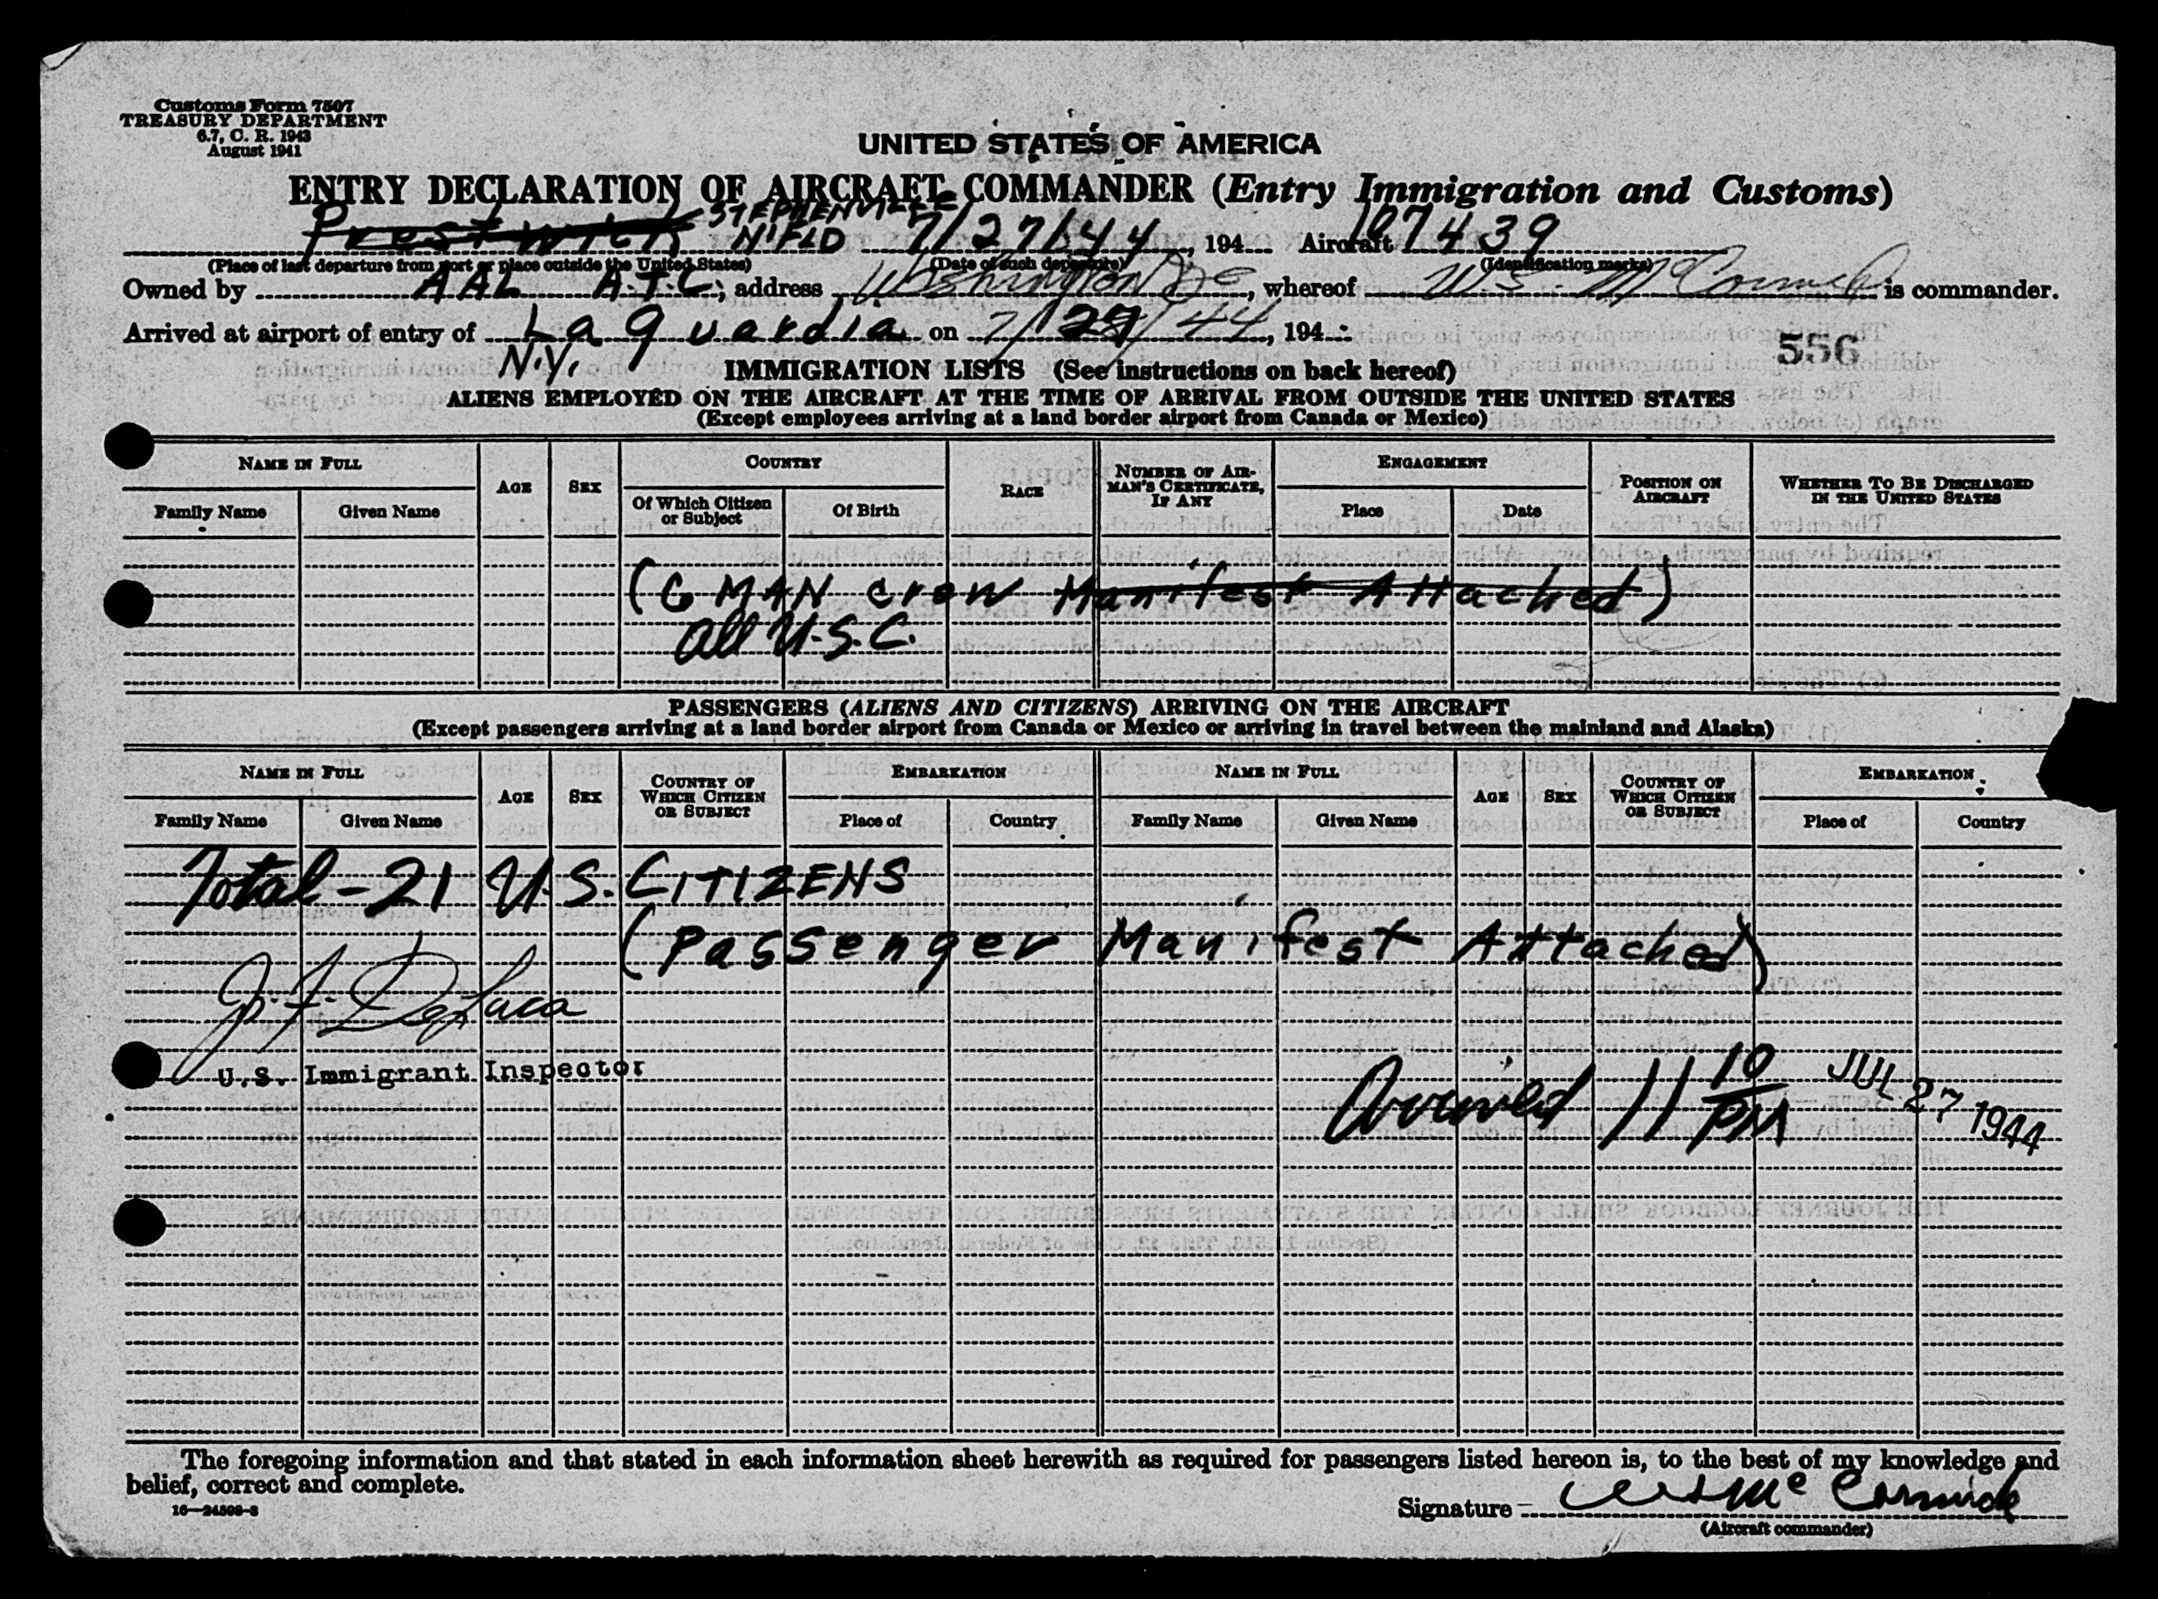 Customs Form 7507
TREASURY DEPARTMENT
6.7, C. R. 1943
August 1941
UNITED STATES OF AMERICA
ENTRY DECLARATION OF AIRCRAFT COMMANDER (Entry Immigration and Customs)
Prestwick STEPHENVILLE N'FLD 7/27/44, 194 Aircraft 107439
(Place of last departure from port or place outside the United States) (Date of such departure) (Identification marks)
Owned by AAL A.T.C.; address Washington DC, whereof W.S. McCormick is commander.
Arrived at airport of entry of La Guardia on 7/ /44, 194
N.Y.
556
IMMIGRATION LISTS (See instructions on back hereof)
ALIENS EMPLOYED ON THE AIRCRAFT AT THE TIME OF ARRIVAL FROM OUTSIDE THE UNITED STATES
(Except employees arriving at a land border airport from Canada or Mexico)
NAME IN FULL AGE SEX COUNTRY RACE NUMBER OF AIRMAN'S CERTIFICATE, IF ANY ENGAGEMENT POSITION ON AIRCRAFT WHETHER TO BE DISCHARGED IN THE UNITED STATES
Family Name Given Name Of Which Citizen or Subject Of Birth Place Date
(6 MAN crew Manifest Attached)
all U.S.C.
PASSENGERS (ALIENS AND CITIZENS) ARRIVING ON THE AIRCRAFT
(Except passengers arriving at a land border airport from Canada or Mexico or arriving in travel between the mainland and Alaska)
NAME IN FULL AGE SEX COUNTRY OF WHICH CITIZEN OR SUBJECT EMBARKATION NAME IN FULL AGE SEX COUNTRY OF WHICH CITIZEN OR SUBJECT EMBARKATION
Family Name Given Name Place of Country Family Name Given Name Place of Country
Total - 21 U.S. CITIZENS
(Passenger Manifest Attached)
J. F. DeLuca
U.S. Immigrant Inspector
Arrived 11 10 PM JUL 27 1944
The foregoing information and that stated in each information sheet herewith as required for passengers listed hereon is, to the best of my knowledge and
belief, correct and complete.
16—24598-3
Signature WS McCormick
(Aircraft commander)